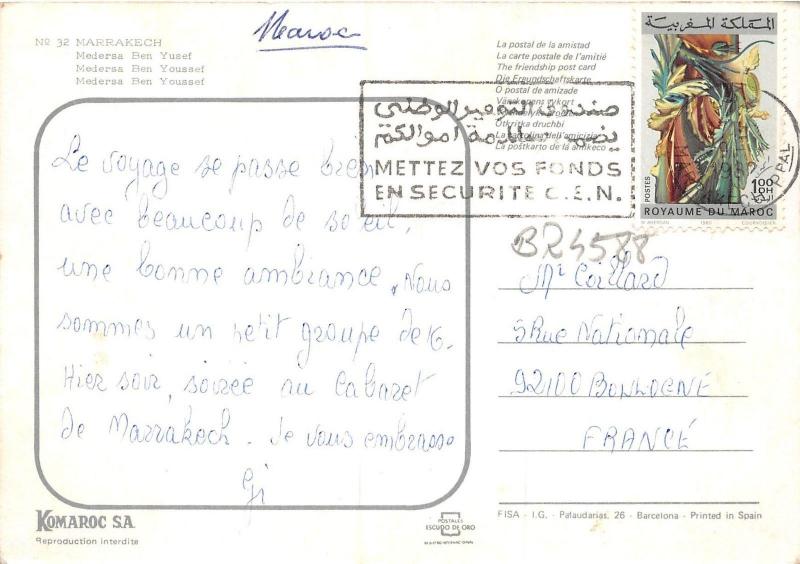 Maroc
Nº 32 MARRAKECH
Medersa Ben Yusef
Medersa Ben Youssef
Medersa Ben Youssef
La postal de la amistad
La carte postale de l'amitié
The friendship post card
Die Freundschaftskarte
O postal de amizade
Otkritka druchbi
La cartolina dell'amicizia
La postkarto de la amikeco
صندوق التوفير الوطني
يضمن سلامة أموالكم
METTEZ VOS FONDS
EN SECURITE C.E.N.
المملكة المغربية
POSTES
1,00
DH
ROYAUME DU MAROC
1980
Le voyage se passe bien
avec beaucoup de soleil,
une bonne ambiance. Nous
sommes un petit groupe de 16.
Hier soir, soirée au Cabaret
de Marrakech. Je vous embrasse
Gi
BR4588
Mr Coillard
5 Rue Nationale
92100 BOULOGNE
FRANCE
KOMAROC S.A.
Reproduction interdite
POSTALES
ESCUDO DE ORO
FISA - I.G. - Palaudarias, 26 - Barcelona - Printed in Spain